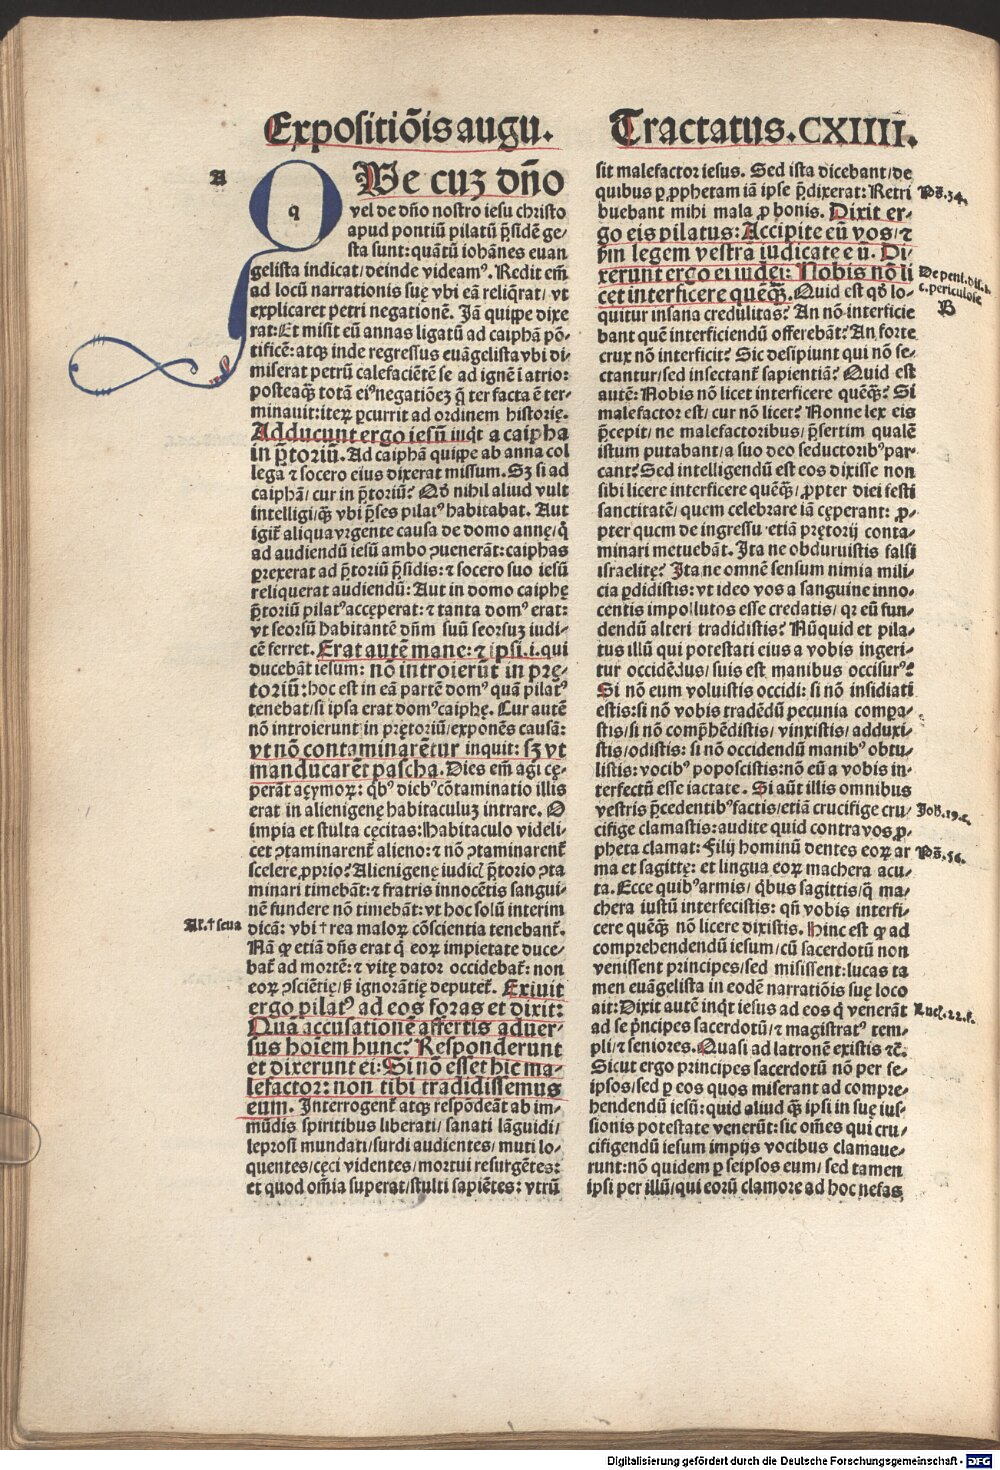 Expositiõis augu.
Tractatus. CXIIII.
A
q
We cuȝ dño
vel de dño nostro iesu christo
apud pontiũ pilatũ p̃sidẽ ge⸗
sta sunt: quãtũ iohãnes euan
gelista indicat/ deinde videamꝰ. Redit em̃
ad locũ narrationis suę vbi eã reliq̃rat/ vt
explicaret petri negationẽ. Jã quippe dixe
rat: Et misit eũ annas ligatũ ad caiphã põ⸗
tificẽ: atqꝫ inde regressus euãgelista vbi di⸗
miserat petrũ calefaciẽtẽ se ad ignẽ ĩ atrio:
posteaqꝫ totã eiꝰ negatiõeȝ q̃ ter facta ẽ ter⸗
minauit: iteꝝ ꝑcurrit ad ordinem historię.
Adducunt ergo iesũ inq̃t a caipha
in p̃toriũ. Ad caiphã quippe ab anna col
lega ⁊ socero eius dixerat missum. Sȝ si ad
caiphã/ cur in p̃toriũ? Qđ nihil aliud vult
intelligi/ q̃ꝫ vbi p̃ses pilatꝰ habitabat. Aut
igit̃ aliqua vrgente causa de domo annę/ q̃
ad audiendũ iesũ ambo ꝯuenerãt: caiphas
ꝑrexerat ad p̃toriũ p̃sidis: ⁊ socero suo iesũ
reliquerat audiendũ: Aut in domo caiphę
p̃toriũ pilatꝰ accęperat: ⁊ tanta domꝰ erat:
vt seorsũ habitantẽ dñm suũ seorsuȝ iudi⸗
cẽ ferret. Erat autẽ mane: ⁊ ipsi .i. qui
ducebãt iesum: nõ introierũt in prę⸗
toriũ: hoc est in eã partẽ domꝰ quã pilatꝰ
tenebat/ si ipsa erat domꝰ caiphę. Cur autẽ
nõ introierunt in prętoriũ/ exponẽs causã:
vt nõ contaminarẽtur inquit: sȝ vt
manducarẽt pascha. Dies em̃ agi cę⸗
perãt aȝymoꝝ: q̃bꝰ diebꝰ cõtaminatio illis
erat in alienigenę habitaculuȝ intrare. O
impia et stulta cęcitas: Habitaculo videli⸗
cet ꝯtaminarent̃ alieno: ⁊ nõ ꝯtaminarent̃
scelere ꝓprio? Alienigenę iudicĩ p̃torio ꝯta
minari timebãt: ⁊ fratris innocẽtis sangui⸗
nẽ fundere nõ timebãt: vt hoc solũ interim
Al. † seua
dicã: vbi † rea maloꝝ cõscientia tenebant̃.
Nã ꝙ etiã dñs erat q̃ eoꝝ impietate duce⸗
bat̃ ad mortẽ: ⁊ vitę dator occidebat̃: non
eoꝝ ꝯsciẽtię/ ß ignorãtię deputet̃. Exiuit
ergo pilatꝰ ad eos foras et dixit:
Quã accusationẽ affertis aduer⸗
sus hoĩem hunc? Responderunt
et dixerunt ei: Si nõ esset hic ma⸗
lefactor: non tibi tradidissemus
eum. Interrogent̃ atqꝫ respõdeãt ab im⸗
mũdis spiritibus liberati/ sanati lãguidi/
leprosi mundati/ surdi audientes/ muti lo⸗
quentes/ cęci videntes/ mortui resurgẽtes:
et quod om̃ia superat/ stulti sapiẽtes: vtrũ
sit malefactor iesus. Sed ista dicebant/ de
quibus ꝑ ꝓphetam iã ipse p̃dixerat: Retri
Ps̃. 34.
buebant mihi mala ꝓ bonis. Dixit er⸗
go eis pilatus: Accipite eũ vos/ ⁊
ẜm legem vestrã iudicate eũ. Di⸗
xerunt ergo ei iudei: Nobis nõ li
De peni. di. 1.
cet interficere quẽq̃ꝫ. Quid est qđ lo⸗
c. periculose
quitur insana credulitas? An nõ interficie
B
bant quẽ interficiendũ offerebãt? An forte
crux nõ interficit? Sic desipiunt qui nõ se⸗
ctantur/ sed insectant̃ sapientiã? Quid est
autẽ: Nobis nõ licet interficere quẽq̃ꝫ? Si
malefactor est/ cur nõ licet? Nonne lex eis
p̃cepit/ ne malefactoribus/ p̃sertim qualẽ
istum putabant/ a suo deo seductoribꝰ par⸗
cant? Sed intelligendũ est eos dixisse non
sibi licere interficere quẽq̃ꝫ/ ꝓpter diei festi
sanctitatẽ/ quem celebrare iã cęperant: ꝓ⸗
pter quem de ingressu etiã prętorij conta⸗
minari metuebãt. Ita ne obduruistis falsi
israelitę? Ita ne omnẽ sensum nimia mili⸗
cia ꝑdidistis: vt ideo vos a sanguine inno⸗
centis impollutos esse credatis/ qꝛ eũ fun⸗
dendũ alteri tradidistis? Nũquid et pila⸗
tus illũ qui potestati eius a vobis ingeri⸗
tur occidẽdus/ suis est manibus occisurꝰ?
Si nõ eum voluistis occidi: si nõ insidiati
estis: si nõ vobis tradẽdũ pecunia compa⸗
stis/ si nõ compręhẽdistis/ vinxistis/ adduxi⸗
stis/ odistis: si nõ occidendũ manibꝰ obtu⸗
listis: vocibꝰ poposcistis: nõ eũ a vobis in⸗
terfectũ esse iactate. Si aũt illis omnibus
vestris p̃cedentibꝰ factis/ etiã crucifige cru⸗
Joh. 19. c.
cifige clamastis: audite quid contra vos ꝓ⸗
pheta clamat: Filij hominũ dentes eoꝝ ar
Ps̃. 56.
ma et sagittę: et lingua eoꝝ machera acu⸗
ta. Ecce quibꝰ armis/ q̃bus sagittis/ q̃ ma⸗
chera iustũ interfecistis: qñ vobis interfi⸗
cere quẽq̃ꝫ nõ licere dixistis. Hinc est ꝙ ad
comprehendendũ iesum/ cũ sacerdotũ non
venissent principes/ sed misissent: lucas ta
men euãgelista in eodẽ narratiõis suę loco
ait: Dixit autẽ inq̃t iesus ad eos q̃ venerãt
Luc̃. 22. f.
ad se p̃ncipes sacerdotũ/ ⁊ magistratꝰ tem⸗
pli/ ⁊ seniores. Quasi ad latronẽ existis ⁊c̃.
Sicut ergo principes sacerdotũ nõ per se⸗
ipsos/ sed ꝑ eos quos miserant ad compre⸗
hendendũ iesũ: quid aliud q̃ꝫ ipsi in suę ius⸗
sionis potestate venerũt: sic om̃es qui cru⸗
cifigendũ iesum impijs vocibus clamaue⸗
runt: nõ quidem ꝑ seipsos eum/ sed tamen
ipsi per illũ/ qui eorũ clamore ad hoc nefas
Digitalisierung gefördert durch die Deutsche Forschungsgemeinschaft - DFG